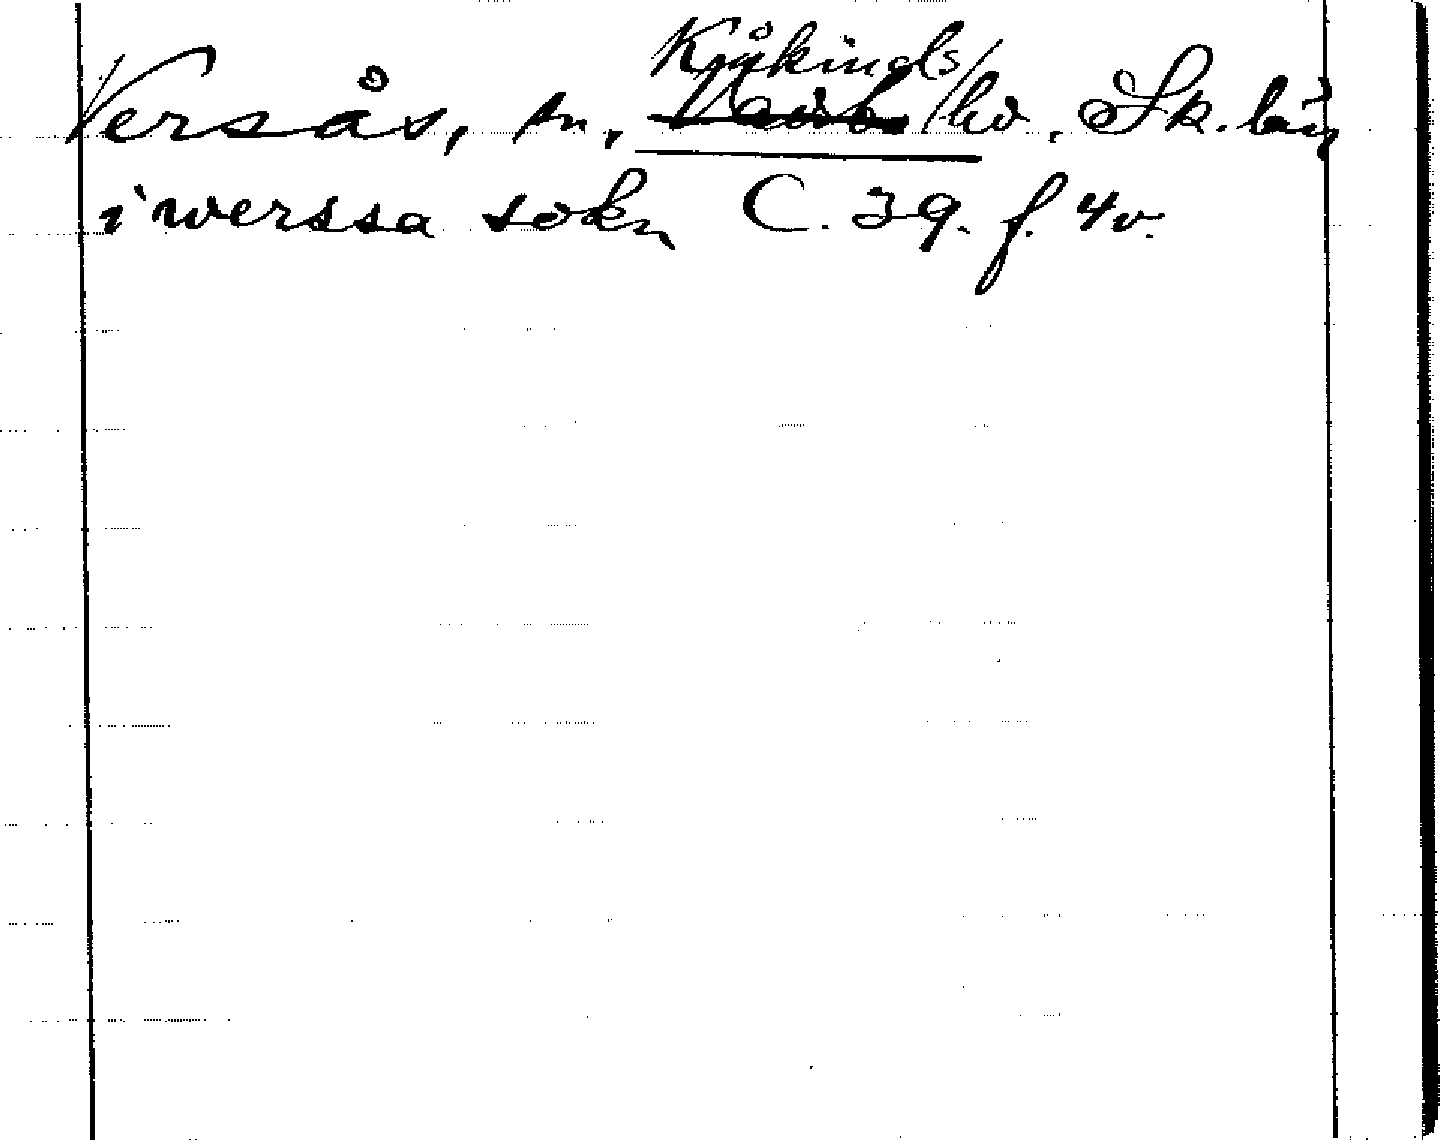 Kåkinds
Versås, sn, Vadsb hd. Sk. län
i werssa sokn C. 39. f. 4v.